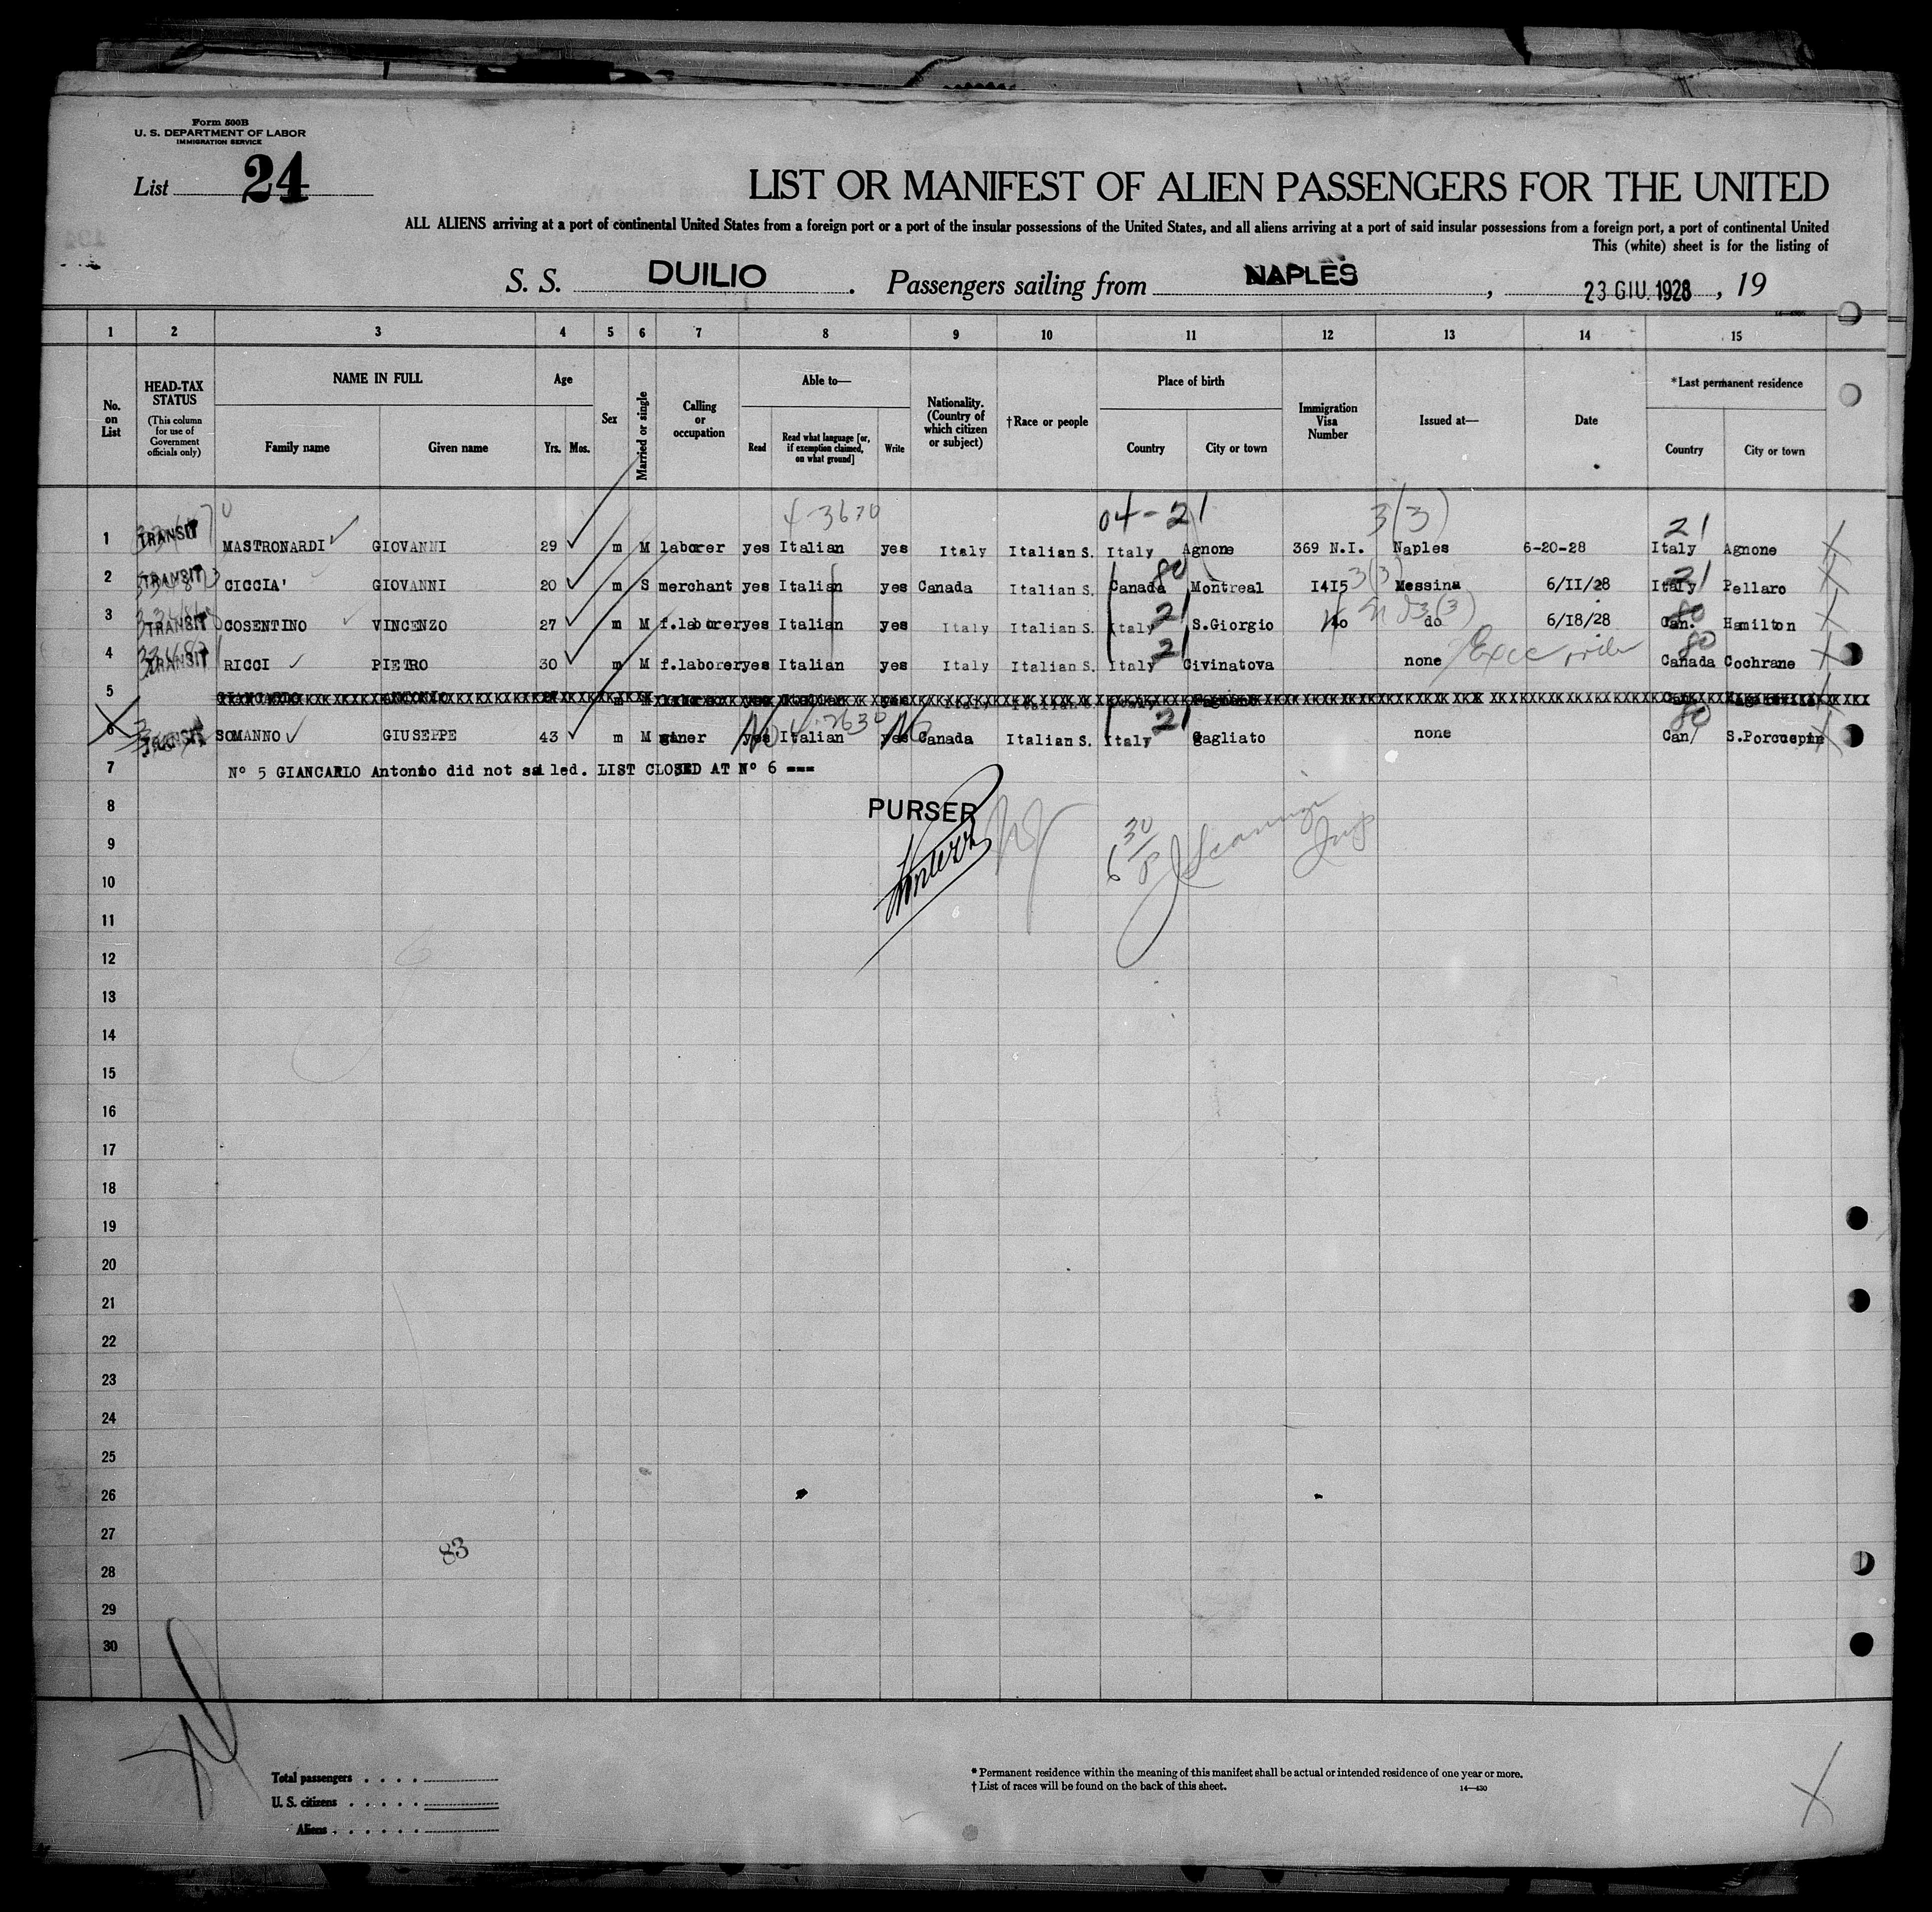 Form 500B
U. S. DEPARTMENT OF LABOR
IMMIGRATION SERVICE
List 24
LIST OR MANIFEST OF ALIEN PASSENGERS FOR THE UNITED
ALL ALIENS arriving at a port of continental United States from a foreign port or a port of the insular possessions of the United States, and all aliens arriving at a port of said insular possessions from a foreign port, a port of continental United
This (white) sheet is for the listing of
S. S. DUILIO. Passengers sailing from NAPLES, 23 GIU. 1928, 19
1 2 3 4 5 6 7 8 9 10 11 12 13 14 15
No. on List
HEAD-TAX STATUS (This column for use of Government officials only)
NAME IN FULL
Family name Given name
Age
Yrs. Mos.
Sex
Married or single
Calling or occupation
Able to—
Read Read what language [or, if exemption claimed, on what ground] Write
Nationality. (Country of which citizen or subject)
†Race or people
Place of birth
Country City or town
Immigration Visa Number
Issued at—
Date
*Last permanent residence
Country City or town
4-3670 04-21 3(3) 21
1 TRANSIT MASTRONARDI GIOVANNI 29 m M laborer yes Italian yes Italy Italian S. Italy Agnone 369 N.I. Naples 6-20-28 Italy Agnone
80 3(3) 21
2 TRANSIT CICCIA' GIOVANNI 20 m S merchant yes Italian yes Canada Italian S. Canada Montreal I4I5 Messina 6/II/28 Italy Pellaro
21 3(3) 80
3 TRANSIT COSENTINO VINCENZO 27 m M f.laborer yes Italian yes Italy Italian S. Italy S.Giorgio do 6/I8/28 Can. Hamilton
21 80
4 TRANSIT RICCI PIETRO 30 m M f.laborer yes Italian yes Italy Italian S. Italy Civinatova none Canada Cochrane
5 GIANCARLO ANTONIO
No No 21 80
6 TRANSIT SOMANNO GIUSEPPE 43 m M miner yes Italian yes Canada Italian S. Italy Gagliato none Can/ S.Porcupine
7 N° 5 GIANCARLO Antonio did not sailed. LIST CLOSED AT N° 6 ===
8 PURSER
9
10
11
12
13
14
15
16
17
18
19
20
21
22
23
24
25
26
27
83
28
29
30
Total passengers . . . .
U. S. citizens . . . . .
Aliens . . . . . .
* Permanent residence within the meaning of this manifest shall be actual or intended residence of one year or more.
† List of races will be found on the back of this sheet.
14—430